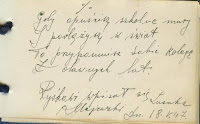 Gdy opuścisz szkolne mury
I podążysz w świat
To przypomnisz sobie kolegę
Z dawnych lat.
Wpisał się
Dn. 18 X 47